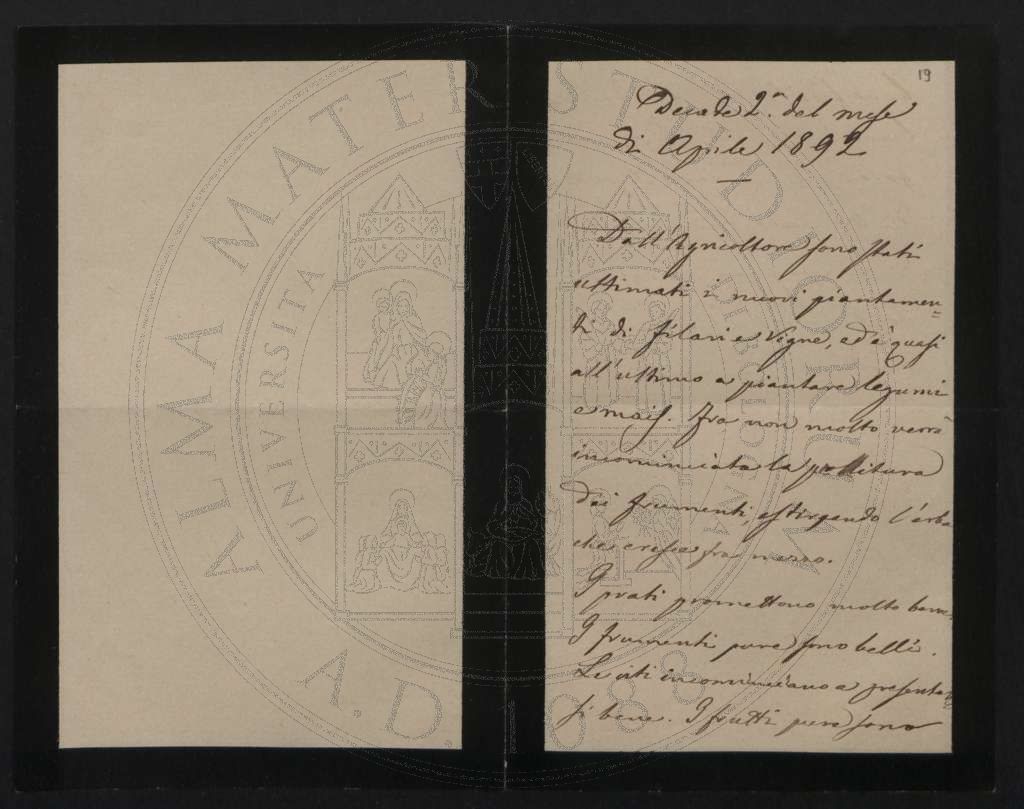 19
Decade 2ª. del mese
di Aprile 1892
Dall'Agricoltore sono stati
ultimati i nuovi piantamen=
ti di filari e vigne, ed è quasi
all'ultimo a piantare legumi
e mais. Fra non molto verrà
incominciata la pulitura
dei frumenti, estirpando l'erba
che cresce fra mezzo.
I prati promettono molto bene,
I frumenti pure sono belli.
Le viti incominciano a presentar
si bene. I frutti pure sono
ALMA MATER STUDIORUM
UNIVERSITÀ DI BOLOGNA
A.D. 1088